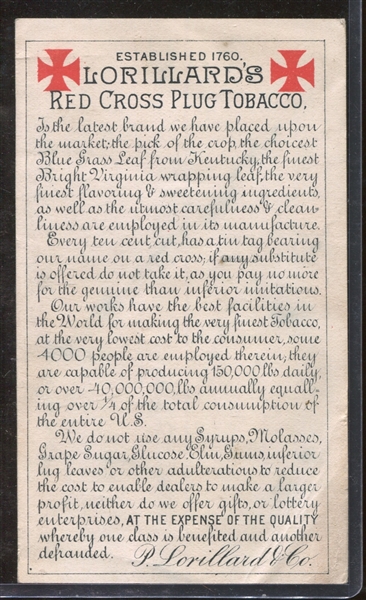 ESTABLISHED 1760.
LORILLARD'S
RED CROSS PLUG TOBACCO,
Is the latest brand we have placed upon
the market; the pick of the crop, the choicest
Blue Grass Leaf from Kentucky, the finest
Bright Virginia wrapping leaf, the very
finest flavoring & sweetening ingredients,
as well as the utmost carefulness & clean-
liness are employed in its manufacture.
Every ten cent cut, has a tin tag bearing
our name on a red cross; if any substitute
is offered do not take it, as you pay no more
for the genuine than inferior imitations.
Our works have the best facilities in
the World for making the very finest Tobacco,
at the very lowest cost to the consumer, some
4000 people are employed therein; they
are capable of producing 150,000 lbs daily,
or over 40,000,000, lbs annually equall-
ing over 1/4 of the total consumption of
the entire U.S.
We do not use any Syrups, Molasses,
Grape Sugar, Glucose, Elm, Gums, inferior
lug leaves or other adulterations to reduce
the cost to enable dealers to make a larger
profit, neither do we offer gifts, or lottery
enterprises, AT THE EXPENSE OF THE QUALITY
whereby one class is benefited and another
defrauded. P. Lorillard & Co.